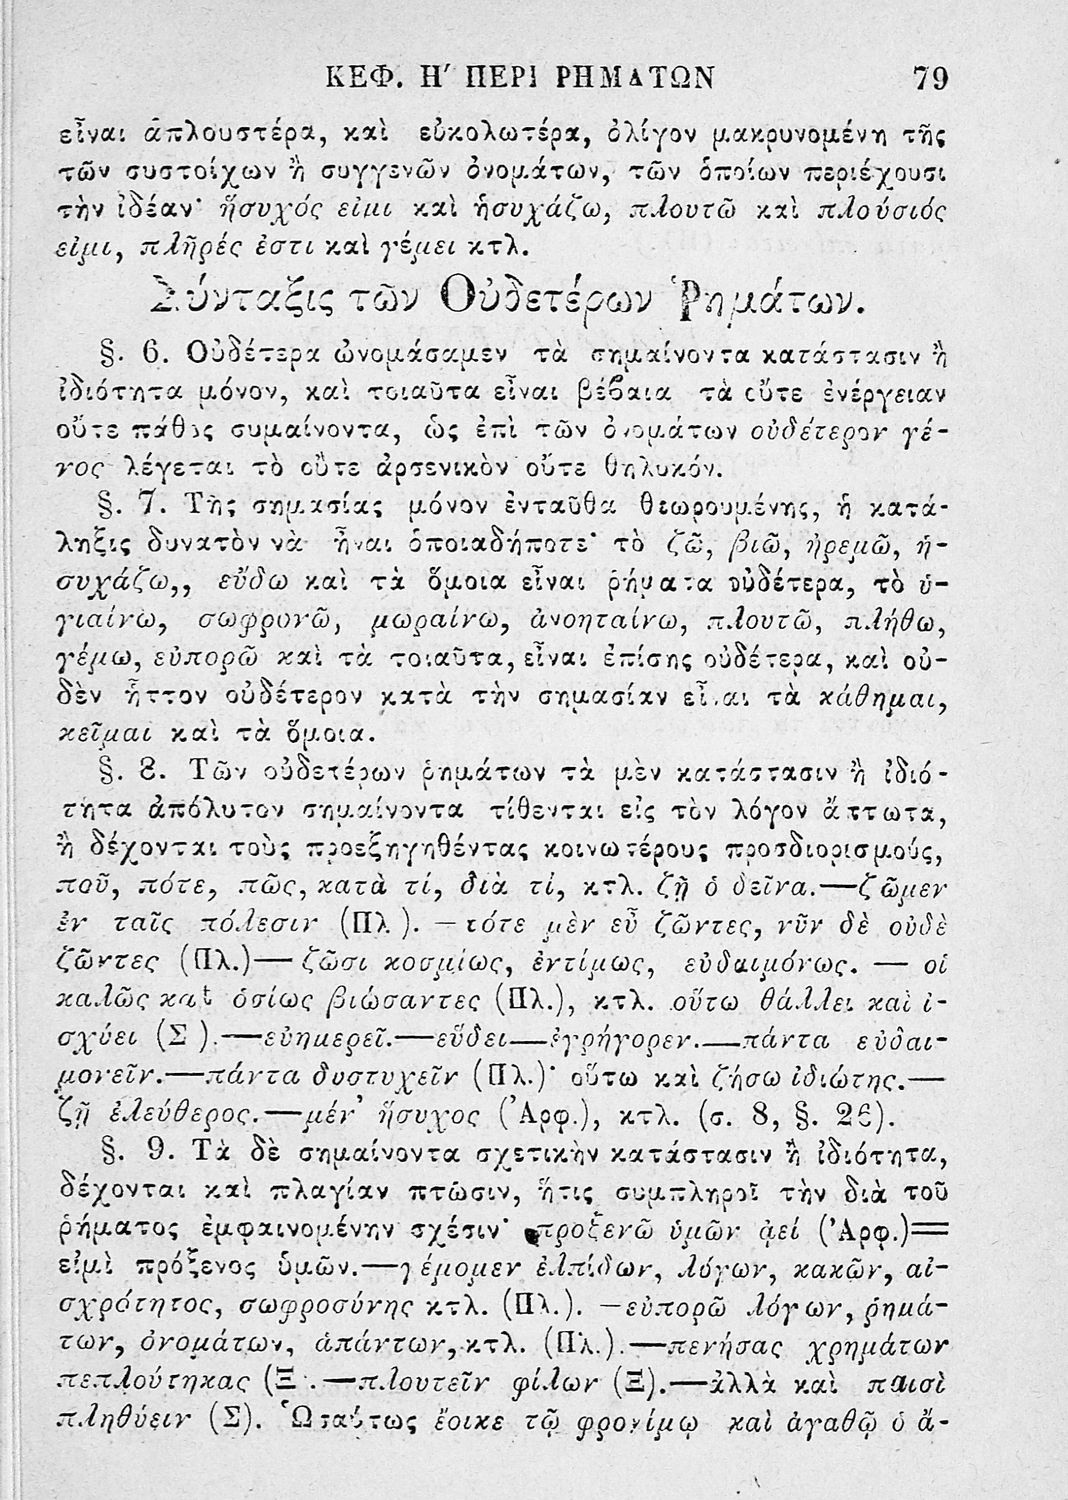 ΚΕΦ. Η' ΠΕΡΙ ΡΗΜΑΤΩΝ 79
εἶναι ἁπλουστέρα, καὶ εὐκολωτέρα, ὀλίγον μακρυνομένη τῆς
τῶν συστοίχων ἢ συγγενῶν ὀνομάτων, τῶν ὁποίων περιέχουσι
τὴν ἰδέαν· ἥσυχός εἰμι καὶ ἡσυχάζω, πλουτῶ καὶ πλούσιός
εἰμι, πλῆρές ἐστι καὶ γέμει κτλ.
Σύνταξις τῶν Οὐδετέρων Ῥημάτων.
§. 6. Οὐδέτερα ὠνομάσαμεν τὰ σημαίνοντα κατάστασιν ἢ
ἰδιότητα μόνον, καὶ τοιαῦτα εἶναι βέβαια τὰ οὔτε ἐνέργειαν
οὔτε πάθος συμαίνοντα, ὡς ἐπὶ τῶν ὀνομάτων οὐδέτερον γέ-
νος λέγεται τὸ οὔτε ἀρσενικὸν οὔτε θηλυκόν.
§. 7. Τῆς σημασίας μόνον ἐνταῦθα θεωρουμένης, ἡ κατά-
ληξις δυνατὸν νὰ ἦναι ὁποιαδήποτε· τὸ ζῶ, βιῶ, ἠρεμῶ, ἡ-
συχάζω,, εὕδω καὶ τὰ ὅμοια εἶναι ῥήματα οὐδέτερα, τὸ ὑ-
γιαίνω, σωφρονῶ, μωραίνω, ἀνοηταίνω, πλουτῶ, πλήθω,
γέμω, εὐπορῶ καὶ τὰ τοιαῦτα, εἶναι ἐπίσης οὐδέτερα, καὶ οὐ-
δὲν ἧττον οὐδέτερον κατὰ τὴν σημασίαν εἶναι τὰ κάθημαι,
κεῖμαι καὶ τὰ ὅμοια.
§. 8. Τῶν οὐδετέρων ῥημάτων τὰ μὲν κατάστασιν ἢ ἰδιό-
τητα ἀπόλυτον σημαίνοντα τίθενται εἰς τὸν λόγον ἄπτωτα,
ἢ δέχονται τοὺς προεξηγηθέντας κοινωτέρους προσδιορισμούς,
ποῦ, πότε, πῶς, κατὰ τί, διὰ τί, κτλ. ζῇ ὁ δεῖνα.—ζῶμεν
ἐν ταῖς πόλεσιν (Πλ.). —τότε μὲν εὖ ζῶντες, νῦν δὲ οὐδὲ
ζῶντες (Πλ.)— ζῶσι κοσμίως, ἐντίμως, εὐδαιμόνως. — οἱ
καλῶς καὶ ὁσίως βιώσαντες (Πλ.), κτλ. οὕτω θάλλει καὶ ἰ-
σχύει (Σ ).—εὐημερεῖ.—εὕδει—ἐγρήγορεν.—πάντα εὐδαι-
μονεῖν.—πάντα δυστυχεῖν (Πλ.)· οὕτω καὶ ζήσω ἰδιώτης.—
ζῇ ἐλεύθερος.—μέν' ἥσυχος (Ἀρφ.), κτλ. (σ. 8, §. 26).
§. 9. Τὰ δὲ σημαίνοντα σχετικὴν κατάστασιν ἢ ἰδιότητα,
δέχονται καὶ πλαγίαν πτῶσιν, ἥτις συμπληροῖ τὴν διὰ τοῦ
ῥήματος ἐμφαινομένην σχέσιν· προξενῶ ὑμῶν ἀεί (Ἀρφ.)=
εἰμὶ πρόξενος ὑμῶν.—γέμομεν ἐλπίδων, λόγων, κακῶν, αἰ-
σχρότητος, σωφροσύνης κτλ. (Πλ.). —εὐπορῶ λόγων, ῥημά-
των, ὀνομάτων, ἁπάντων, κτλ. (Πλ.).—πενήσας χρημάτων
πεπλούτηκας (Ξ .—πλουτεῖν φίλων (Ξ).—ἀλλὰ καὶ παισὶ
πληθύειν (Σ). Ὡσαύτως ἔοικε τῷ φρονίμῳ καὶ ἀγαθῷ ὁ ἄ-